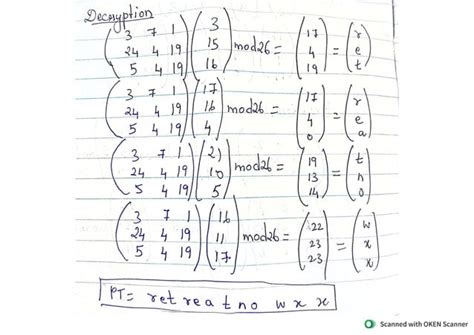 Decryption
(3 7 1 / 24 4 19 / 5 4 19) (3 / 15 / 16) mod 26 = (17 / 4 / 19) = (r / e / t)
(3 7 1 / 24 4 19 / 5 4 19) (17 / 16 / 4) mod 26 = (17 / 4 / 0) = (r / e / a)
(3 7 1 / 24 4 19 / 5 4 19) (21 / 10 / 5) mod 26 = (19 / 13 / 14) = (t / n / o)
(3 7 1 / 24 4 19 / 5 4 19) (16 / 11 / 17) mod 26 = (22 / 23 / 23) = (w / x / x)
PT = ret rea tno w x x
Scanned with OKEN Scanner